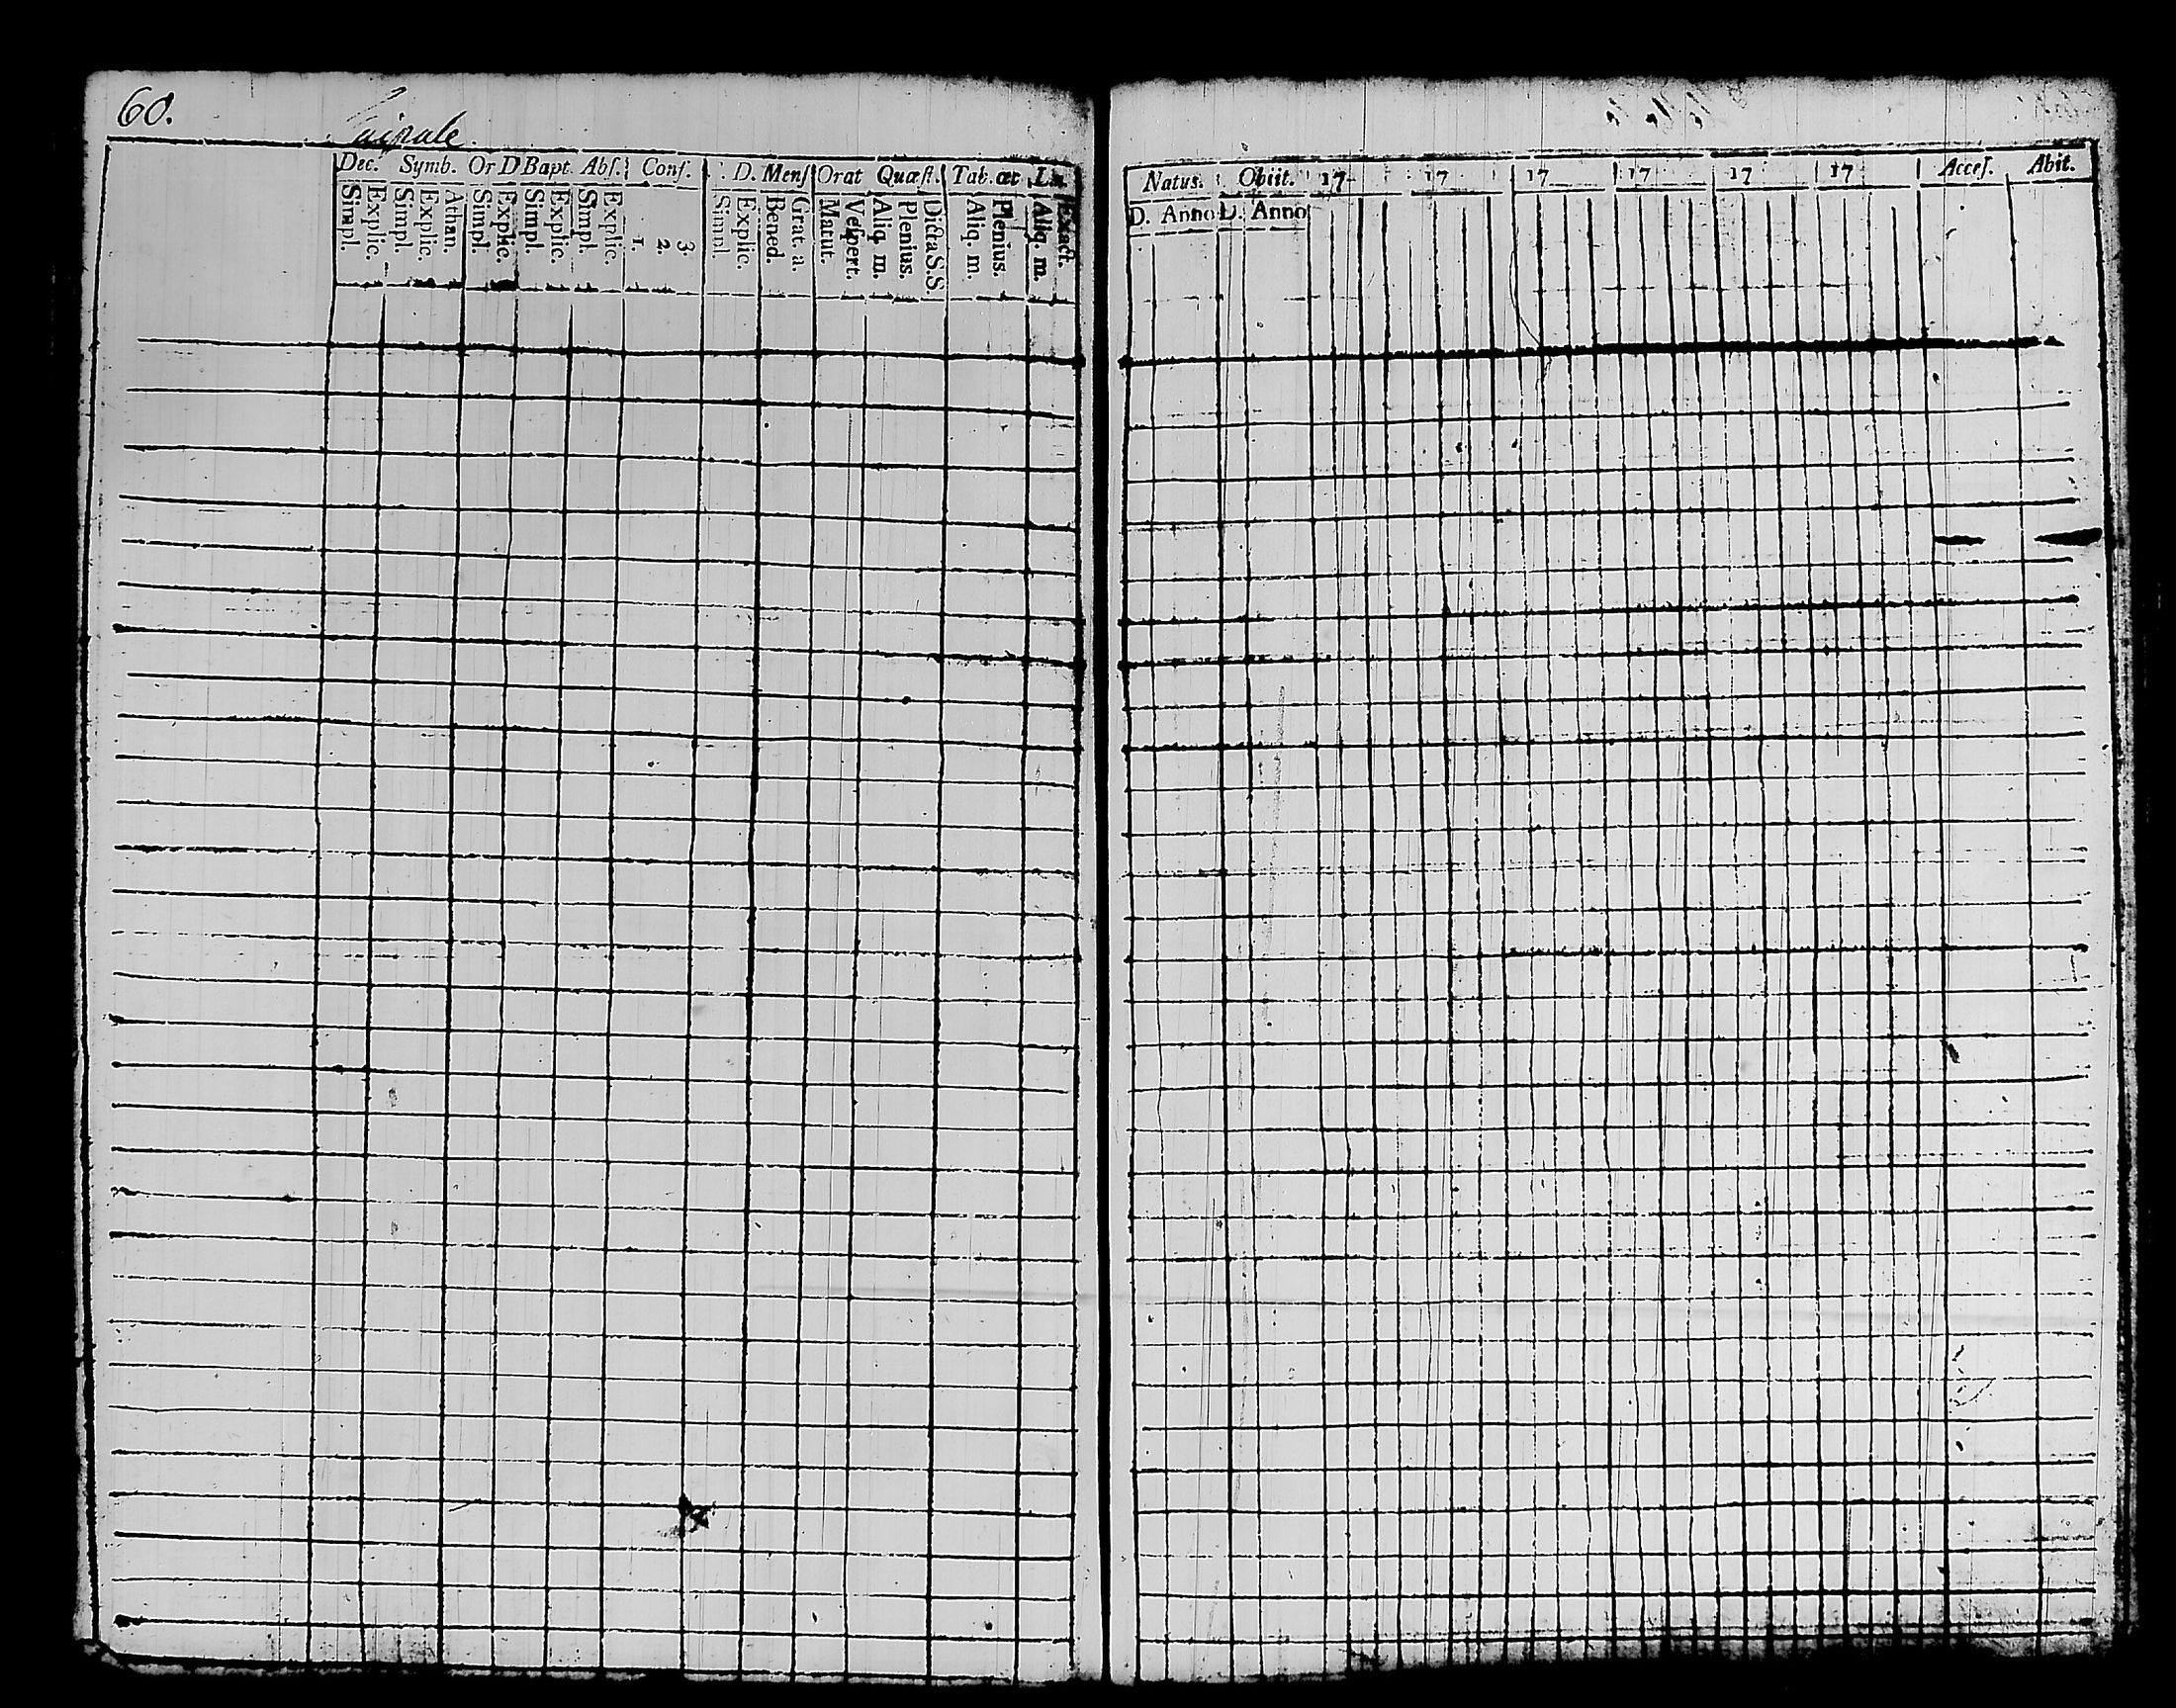 60.
Taipale.
Dec. Symb. Or D Bapt. Abſ. Conſ. D. Menſ Orat Quæſt. Tab. œc
Simpl. Explic. Simpl. Explic. Athan. Simpl. Explic. Simpl. Explic. Simpl. Explic. 1. 2. 3. Simpl. Explic. Bened. Grat. a. Matut. Veſpert. Aliq. m. Plenius. Dicta S.S. Aliq. m. Plenius. Aliq. m. Exact.
Natus. Obiit. 17 17 17 17 17 17 Acceſ. Abit.
D. Anno D. Anno